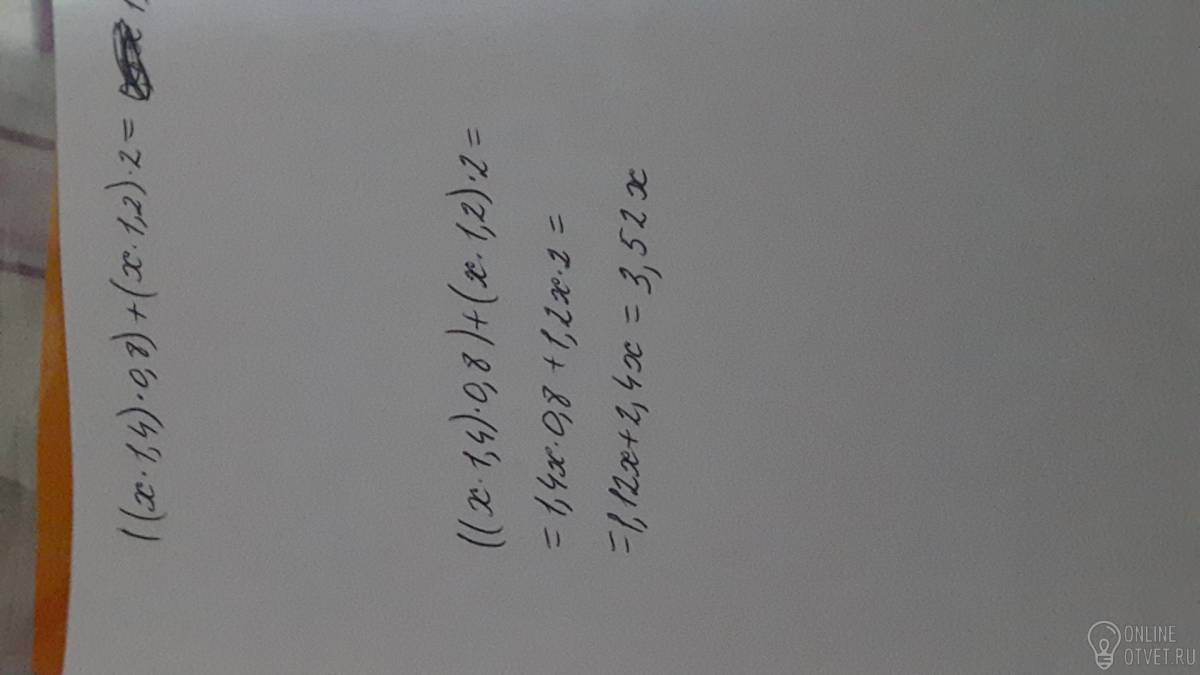 ((x·1,4)·0,8)+(x·1,2)·2=
((x·1,4)·0,8)+(x·1,2)·2=
=1,4x·0,8+1,2x·2=
=1,12x+2,4x=3,52x
ONLINE
OTVET.RU